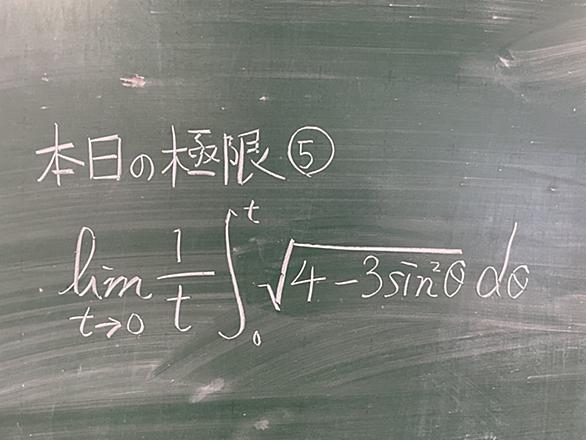 本日の極限⑤
lim_{t→0} \frac{1}{t} ∫_0^t √(4-3sin²θ) dθ